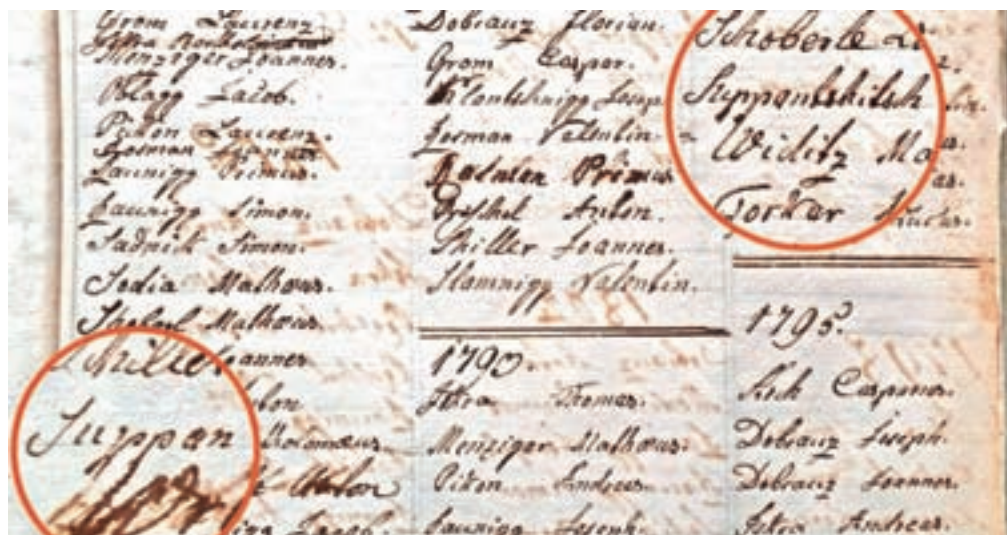 Grom Laurenz
Menziger Joannes.
Plagg Jacob.
Pikon Laurenz.
Josman Joannes
Jaunigg Primus.
Jaunigg Simon.
Sadnick Simon.
Sodia Matheus.
Matheus.
Miller Joannes
Suppan
Anton
Jacob.
Dobrauz Florian.
Grom Casper.
Klontshnigg Joseph
Josman Valentin
Rasman Primus
Prishel Anton.
Shiller Joannes.
Slamnigg Valentin.
1790.
Istra Thomas.
Menziger Matheus.
Pikon Andreas.
Jaunigg Joseph.
Schoberle
Suppantshitsh
Widitz Ma
Torkar
1795.
Casparus.
Dobrauz Joseph.
Dobrauz Joannes.
Istra Andreas.